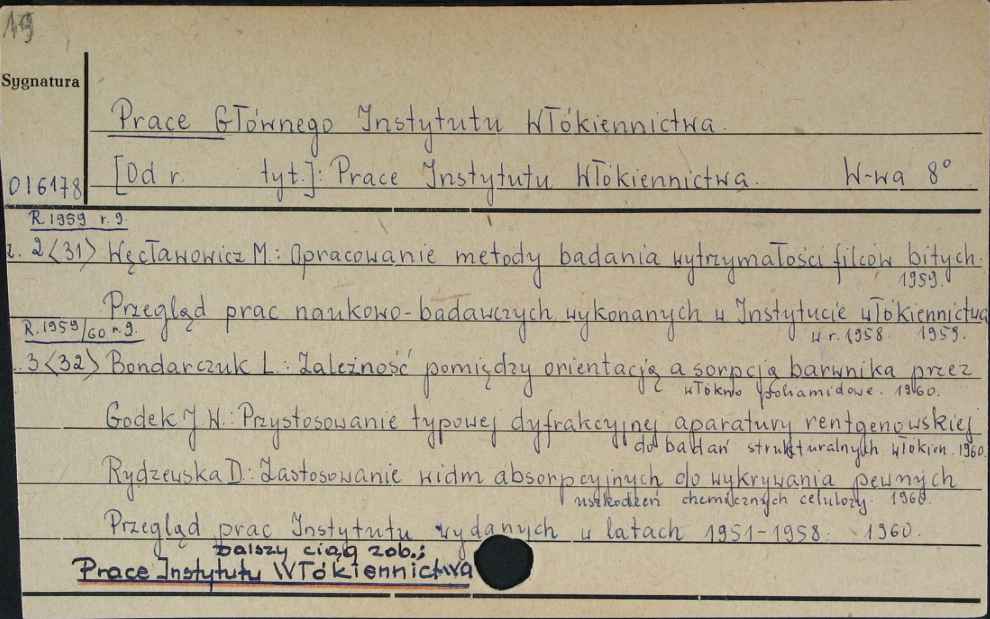 19
Sygnatura
Prace Głównego Instytutu Włókiennictwa.
016178 [Od r. tyt.]: Prace Instytutu Włókiennictwa. W-wa 8°
R. 1959 r. 9.
z. 2 <31> Węcławowicz M.: Opracowanie metody badania wytrzymałości filców bitych.
1959.
Przegląd prac naukowo-badawczych wykonanych w Instytucie Włókiennictwa
w r. 1958 1959.
R. 1959/60 r. 9.
3 <32> Bondarczuk L.: Zależność pomiędzy orientacją a sorpcją barwnika przez
włókno poliamidowe. 1960.
Godek J. W.: Przystosowanie typowej dyfrakcyjnej aparatury rentgenowskiej
do badań strukturalnych włókien. 1960.
Rydzewska D.: Zastosowanie widm absorpcyjnych do wykrywania pewnych
uszkodzeń chemicznych celulozy. 1960.
Przegląd prac Instytutu wydanych w latach 1951-1958. 1960.
Dalszy ciąg zob.:
Prace Instytutu Włókiennictwa